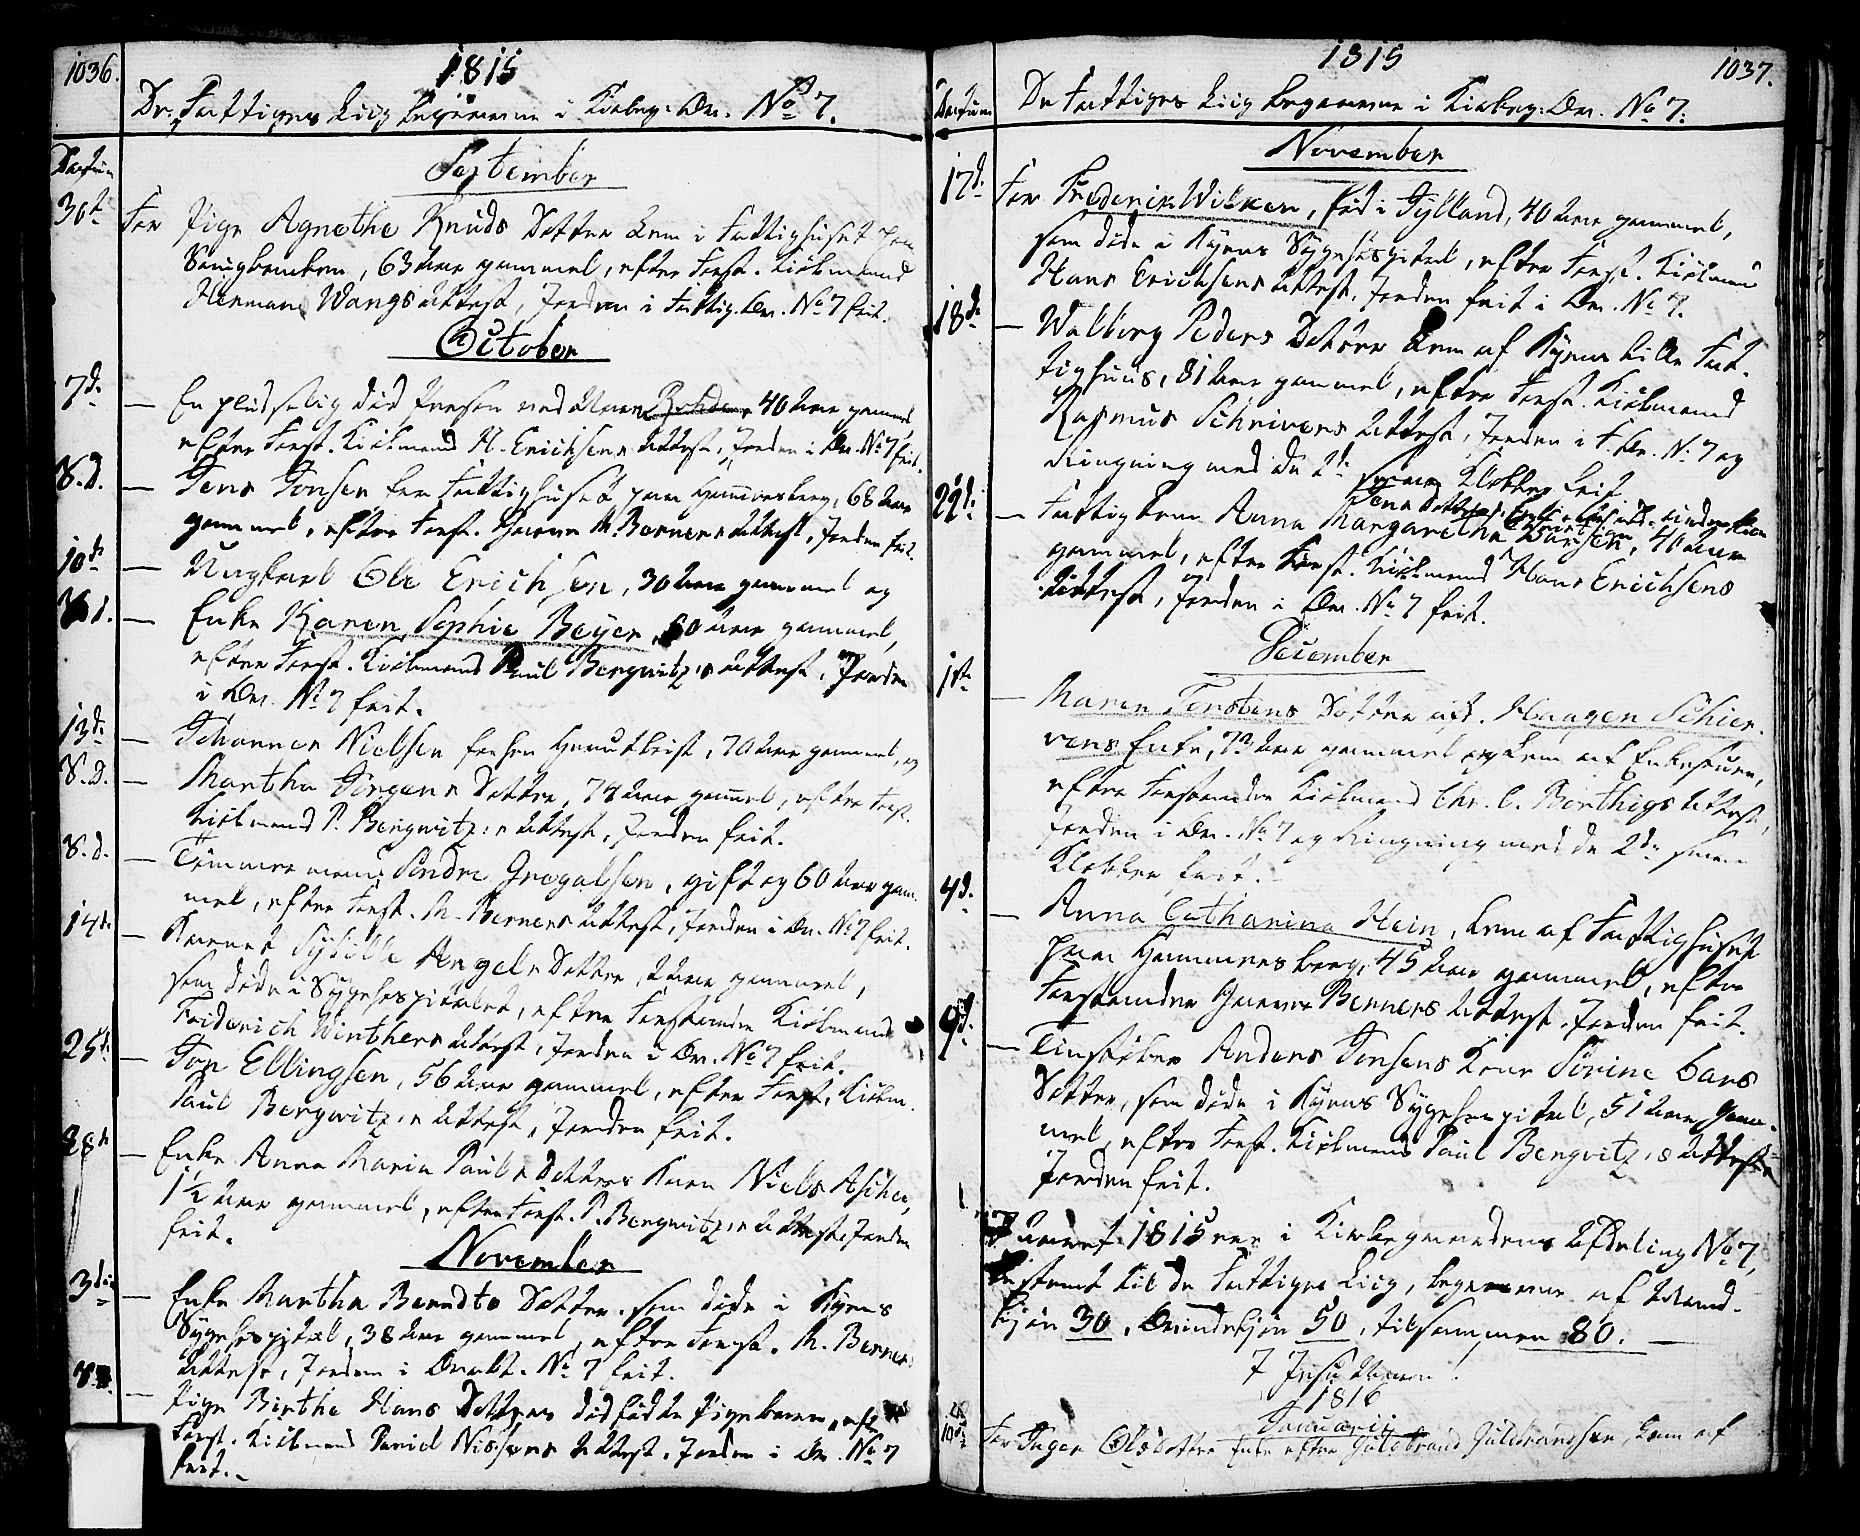 1036.
1815
De Fattiges Liig begravene i Kirkeg: Qu. No 7.
Datum
September
30te For Pige Agnethe Knuds Datter Lem i Fattighuset paa
Saugbanken, 63 Aar gammel, efter Forst. Kiøbmand
Herman Wangs Attest, Jorden i Fattig. Qu. No 7 frit.
October
7d. — En pludselig død Person ved Navn Rohde, 40 Aar gammel,
efter Forst. Kiøbmand H. Erichsens Attest, Jorden i Qu. No 7 frit.
S. D. — Jens Jonsen Lem Fattighuset paa Hammersberg, 68 Aar
gammel, efter Forst. M. Berners Attest, Jorden frit.
10de — Ungkarl Ole Erichsen, 30 Aar gammel og
S. d. — Enke Karen Sophie Beyer, 80 Aar gammel,
efter Forst. Kiøbmand Paul Bergwitz's Attest, Jorden
i Qu. No 7 frit.
13de — Johannes Nielsen 70 Aar gammel, og
S. D. — Martha Jørgens Datter, 74 Aar gammel, efter Forst.
Kiøbmand P. Bergwitz's Attest, Jorden frit.
S. d. — Tømmermand Sondre Gregalsen, gift og 60 Aar gam-
mel, efter Forst. M. Berners Attest, Jorden i Qu. No 7 frit.
14de — Barnet Sybille Angels Datter, Aar gammel,
som døde i Sygehospitalet, efter Forstander Kiøbmand
Friderich Winthers Attest, Jorden i Qu. No 7 frit.
25de — Jon Ellingsen, 56 Aar gammel, efter Forst. Kiøbm.
Paul Bergwitz's Attest, Jorden frit.
28de — Enke Anna Maria Pauls Datters Barn Niels Ascher,
1½ Aar gammel, efter Forst. P. Bergwitz's Attest, Jorden
frit.
November
3die — Enke Martha Berndts Datter, som døde i Byens
Sygehospital, 38 Aar gammel, efter Forst. M. Berners
Attest, Jorden i Qvart. No 7 frit.
8. — Pige Birthe Hans Datters dødfødte Pigebarn, efter
Forst. Kiøbmand David Nissens Attest, Jorden i Qu. No 7
frit.
1815
1037.
Datum
De Fattiges Liig begravene i Kirkeg: Qu. No 7:
November
17de For Frederik Wilken, fød i Jylland, 40 Aar gammel,
som døde i Byens Sygehospital, efter Forst. Kiøbmand
Hans Erichsens Attest, Jorden frit i Qu. No 7.
18de — Walborg Peders Datter Lem af Byens lille Fat-
tighuus, 81 Aar gammel, efter Forst. Kiøbmand
Rasmus Schrivers Attest, Jorden i F. Qu. No 7 og
Ringning med de 2de smaae Klokker frit
22de — Fattiglem Anna Margaretha 40 Aar
gammel, efter Forst. Kiøbmand Hans Erichsens
Attest, Jorden i Qu. No 7 frit.
December
1te — Maren Torstens Datter afd. Haagen Schier-
vens Enke, 73 Aar gammel og Lem af Enkehuset,
efter Forstander Kiøbmand Chr. C. Børthigs Attest,
Jorden i Qu. No 7 og Ringning med de 2de smaae
Klokker frit.
4d. — Anna Catharina Hein, Lem af Fattighuset
paa Hammersberg, 45 Aar gammel, efter
Forstander Berners Attest, Jorden frit.
9d. — Tinstøber Anders Jensens Kone Sørine Lars
Datter, som døde i Byens Sygehospital, 51 Aar gam-
mel, efter Forst. Kiøbmand Paul Bergwitz's Attest
Jorden frit.
I Aaret 1815 ere i Kirkegaardens Afdeling No 7,
bestemt til de Fattiges Liig, begravene af Mand-
kjøn 30, Qvindekjøn 50, tilsammen 80. —
I Jesu Navn!
1816
Januarii
10de For Inger Olsdatter Enke efter Guldbrand Guldbrandsen, Lem af